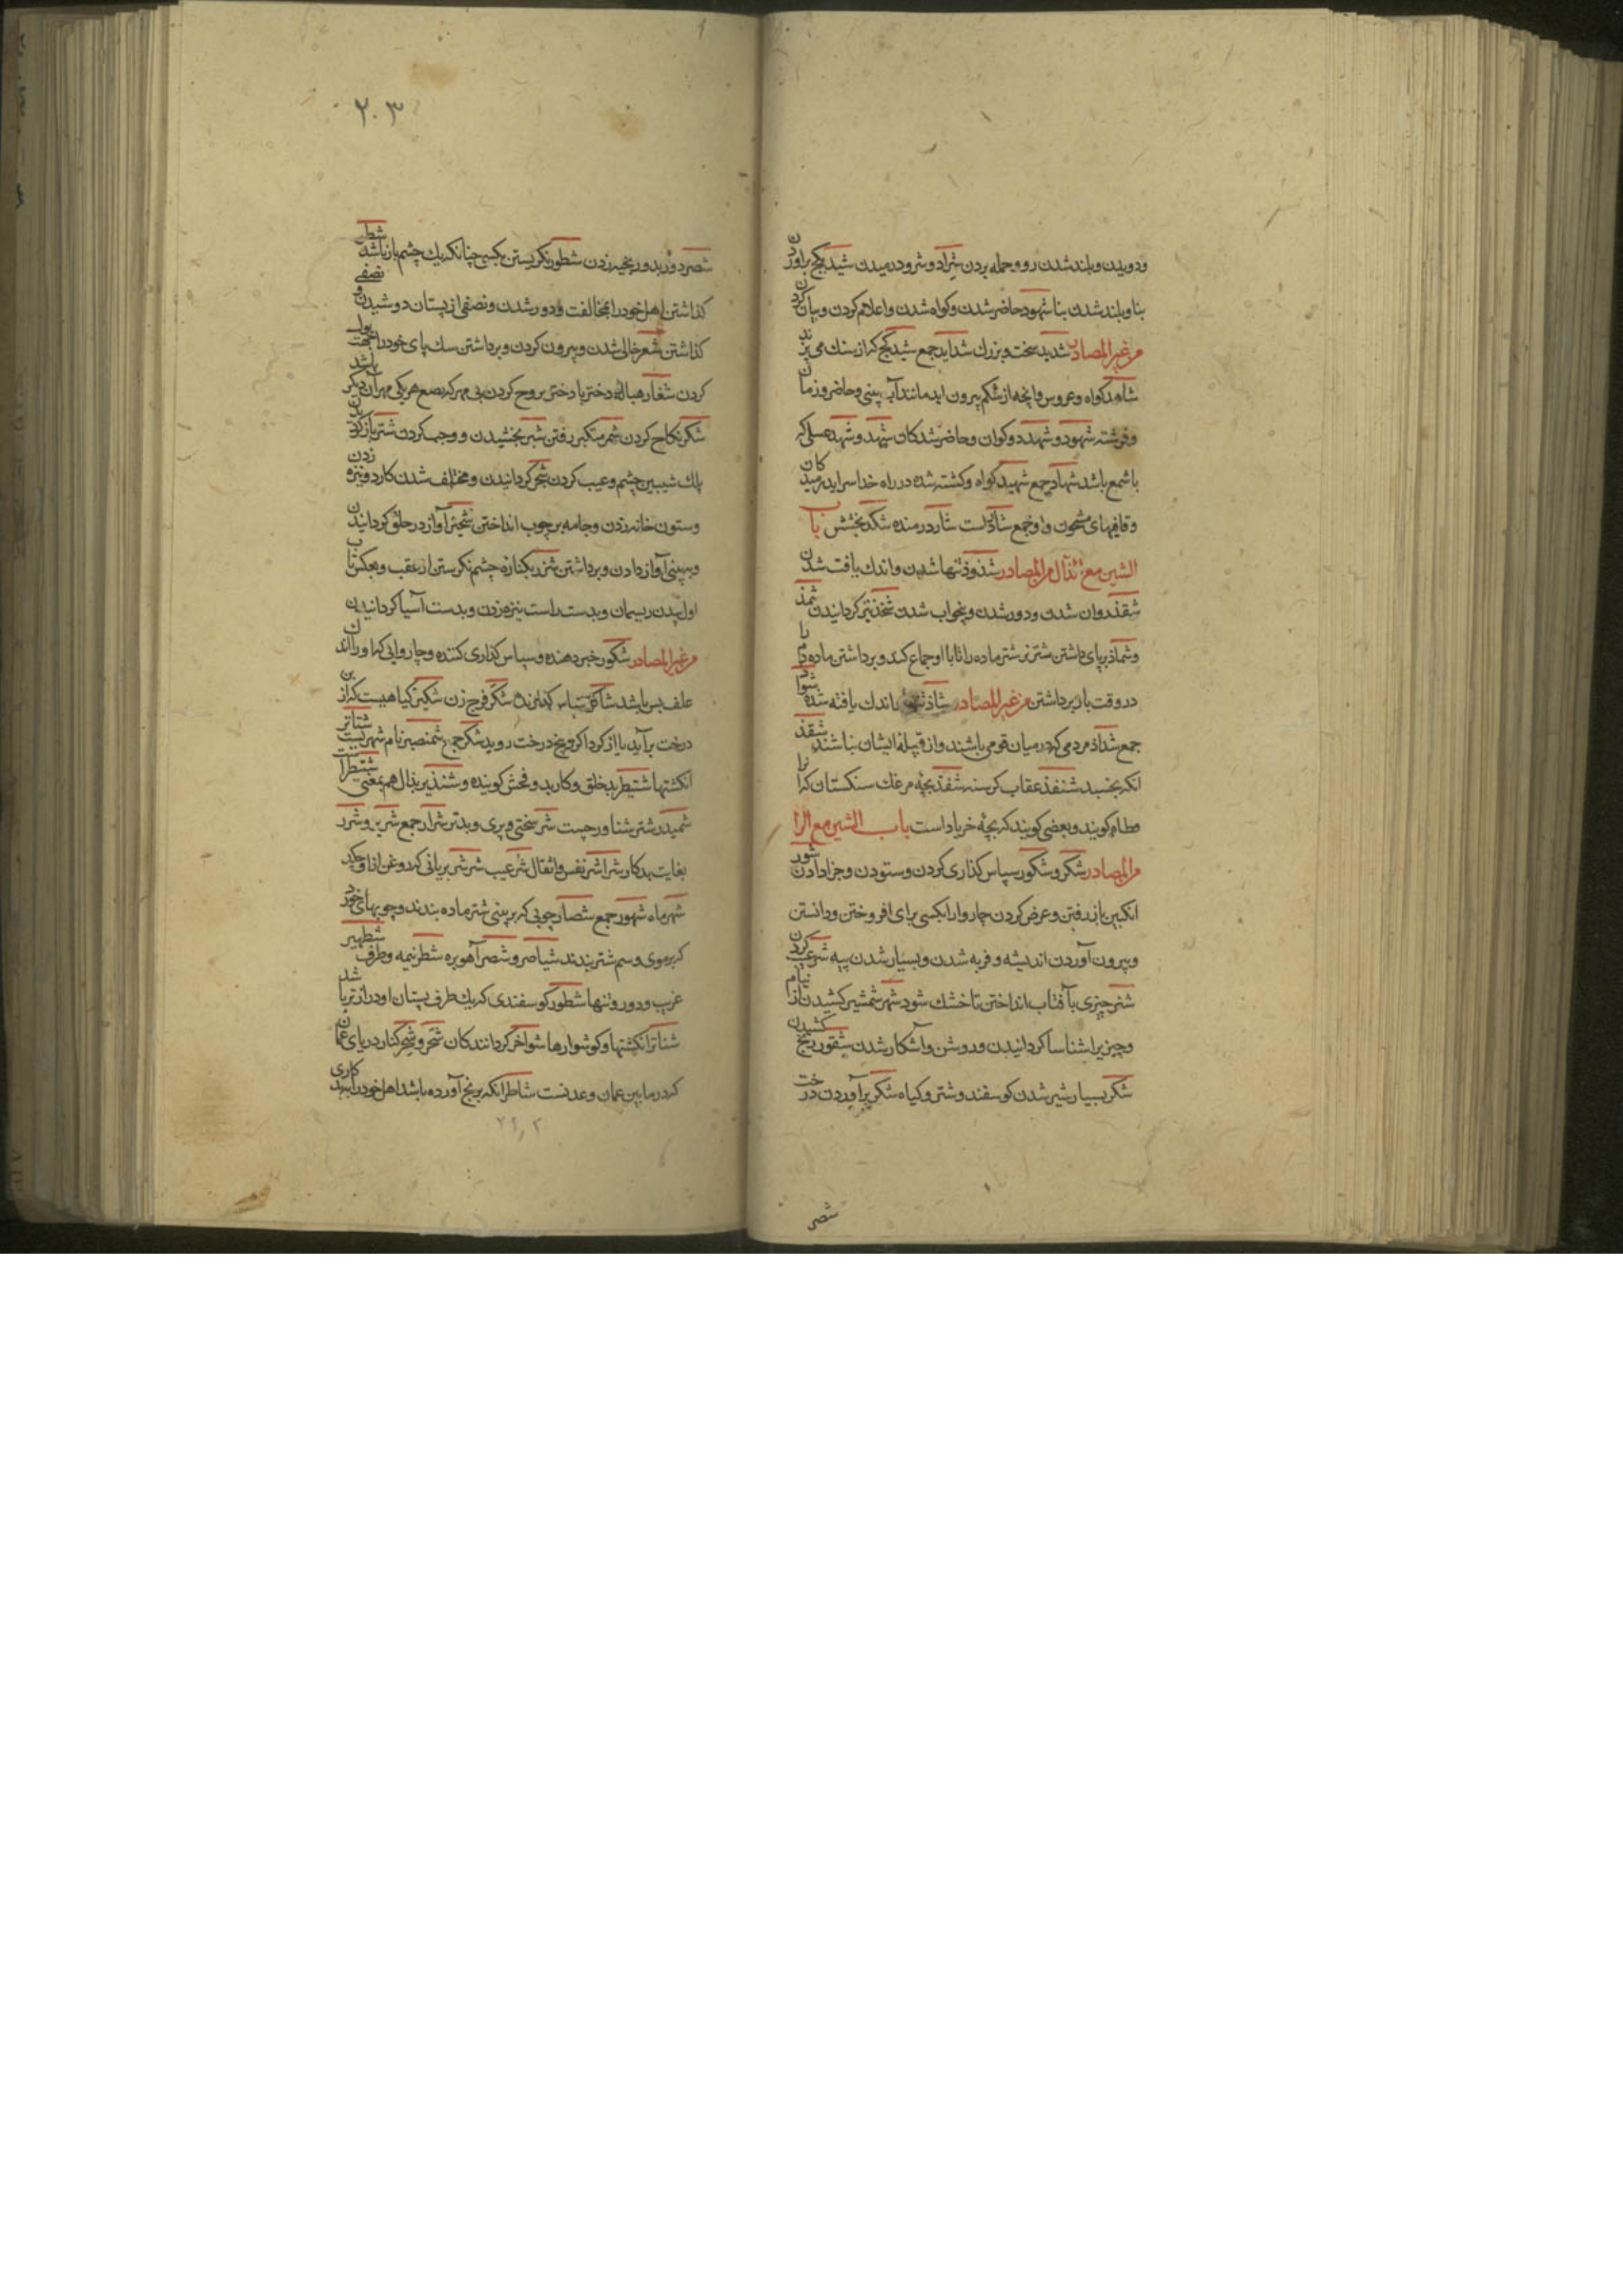 ودویدن وبلند شدن روو حمله بردن شراد و شرود رمیدن شید بگچ براوردن
بنا وبلند شدن بنا شهود حاضر شدن وکواه شدن واعلام کردن وبیان کردن
من غیر المصادر شدید سخت وبزرك شداید جمع شید گچ که از سنك می پزند
شاهد کواه و عروس وانچه از شکم بیرون اید مانند آب بینی وحاضر وزمان
وفرشته شهود و شهد دوکوان وحاضر شدکان شهد و شهده عسلی که
باشمع باشد شهاد جمع شهید کواه وکشته شده در راه خدا
وقافیهای مشحون و او جمع شاد است شارد رمنده شکد بخشش باب
الشین مع الذال من المصادر شذوذ تنها شدن واندك یافت شدن
شقذ روان شدن ودور شدن وبیخواب شدن شخذ تیز کردانیدن شمذ
وشماذ برپای داشتن شتر نر شتر ماده را تا با او جماع کند وبرداشتن ماده دم را
در وقت بار برداشتن من غیر المصادر شاذ تنها اندك یافته شده شواذ
جمع شذاذ مردمی که در میان قومی باشند واز قبیلهٔ ایشان نباشند شقذ
انکه نخسبد شنقذ عقاب کرسنه شقذ بچهٔ مرغك سنکستان که آنرا
قطاة کویند وبعضی کویند که بچهٔ حرباد است باب الشین مع الرا
من المصادر شکر و شکور سپاس کذاری کردن وستودن وجزا دادن شور
انکبین باز رفتن وعرض کردن چاروا را بکسی برای افروختن ودانستن
وبیرون آوردن اندیشه وفربه شدن وبسیار شدن پیه شر عیب کردن
شر چیزی بآفتاب انداختن تا خشك شود شهر شمشیر کشیدن از نیام
وچیزیرا شناسا کردانیدن وروشن وآشکار شدن شقور رنج کشیدن
شکر بسیار شیر شدن کوسفند وشتر وکیاه شکیر برآوردن درخت
شصر
۲۰۳
شصر دوربدور بخیه زدن شطور نکریستن بکسی چنانکه یك چشم باز باشد شطر
کذاشتن اهل خود را بمخالفت ودور شدن ونصفی از پستان دوشیدن ونصفی
کذاشتن شغر خالی شدن وبیرون کردن وبرداشتن سك پای خود را بجهت بول
کردن شغار مبادلهٔ دختر با دختر بزوج کردن بی مهر که بضع هر یکی مهر آن دیکر باشد
شکر نکاح کردن شمر متکبر رفتن شبر بخشیدن ووجب کردن شتر باز کردیدن
پلك شیبین چشم وعیب کردن شجر کردانیدن ومختلف شدن کار ونیزه زدن
وستون خانه زدن وجامه بر چوب انداختن شخیر آواز در حلق کردانیدن
وبه بینی آواز دادن وبرداشتن شزر بکنارهٔ چشم نکرستن از عقب وبعکس تاب
اول پیچیدن ریسمان وبدست راست نیزه زدن وبدست آسیا کردانیدن
من غیر المصادر شکور خبر دهنده وسپاس کذاری کننده وچاروایی که او را اندك
علف بس باشد شاکر سپاس کذارنده شکر فرج زن شکیر کیاهیست که از بن
درخت برآید یا از کرداکرد بیخ درخت روید شکر جمع شمنصیر نام شهریست شناتر
انکشتها شنظیر بد خلق وکارید وفحش کوینده و شنذیر بذال هم بمعنی شنیظر است
شمیدر شتر شناور چست شر سختی وبری وبدتر شرار جمع شریر و شرر
بغایت بدکار شراشر نفس واثقال شر عیب شر شر بریانی که روغن ازاو چکد
شهر ماه شهور جمع شصار چوبی که بر بینی شتر ماده بندند وچوبهای خورد
که بر موی وسم شتر بندند شیاصر و شصر آهو بره شطر نیمه وطرف شطیر
غریب ودور وتنها شطور کوسفندی که یك طرف پستان او دراز تر باشد
شناتر انکشتها وکوشوارها شواخر کردانندکان شحر و شجر کنار دریای عمان
که در مابین عمان وعدنست شاطر انکه برنج آورده باشد اهل خود را ببدکاری